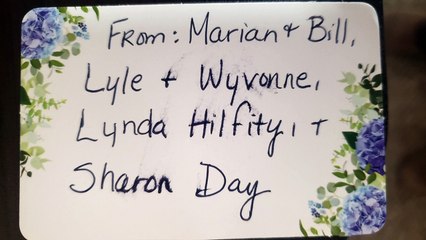 From: Marian + Bill,
Lyle + Wyvonne,
Lynda Hilfity, +
Sharon Day